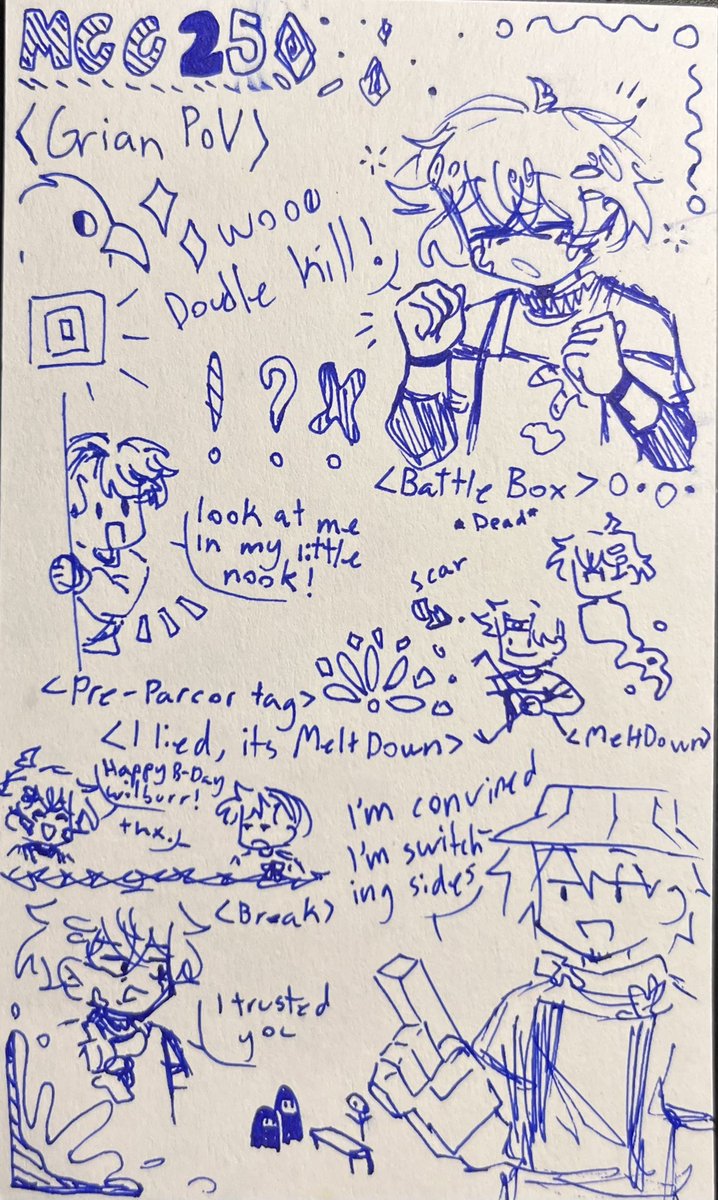 MCC 25
<Grian PoV>
wooo
Double kill!
! ? !
look at me
in my little
nook!
<Battle Box>
*Dead*
scar
<Pre-Parcor tag>
<I lied, its MeltDown>
<MeltDown>
Happy B-Day
wilburr!
thx.
I'm convined
I'm switch-
ing sides
<Break>
I trusted
you